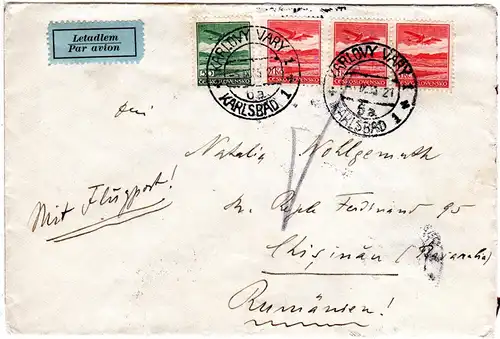 Letadlem
Par avion
KARLOVY VARY 1
6a
KARLSBAD 1
ČESKOSLOVENSKO
ČESKOSLOVENSKO
KARLOVY VARY 1
6a
KARLSBAD 1
Natalia Wohlgemuth
Mit Flugpost!
Ferdinand 95
Chişinău (Basarabia)
Rumänien!